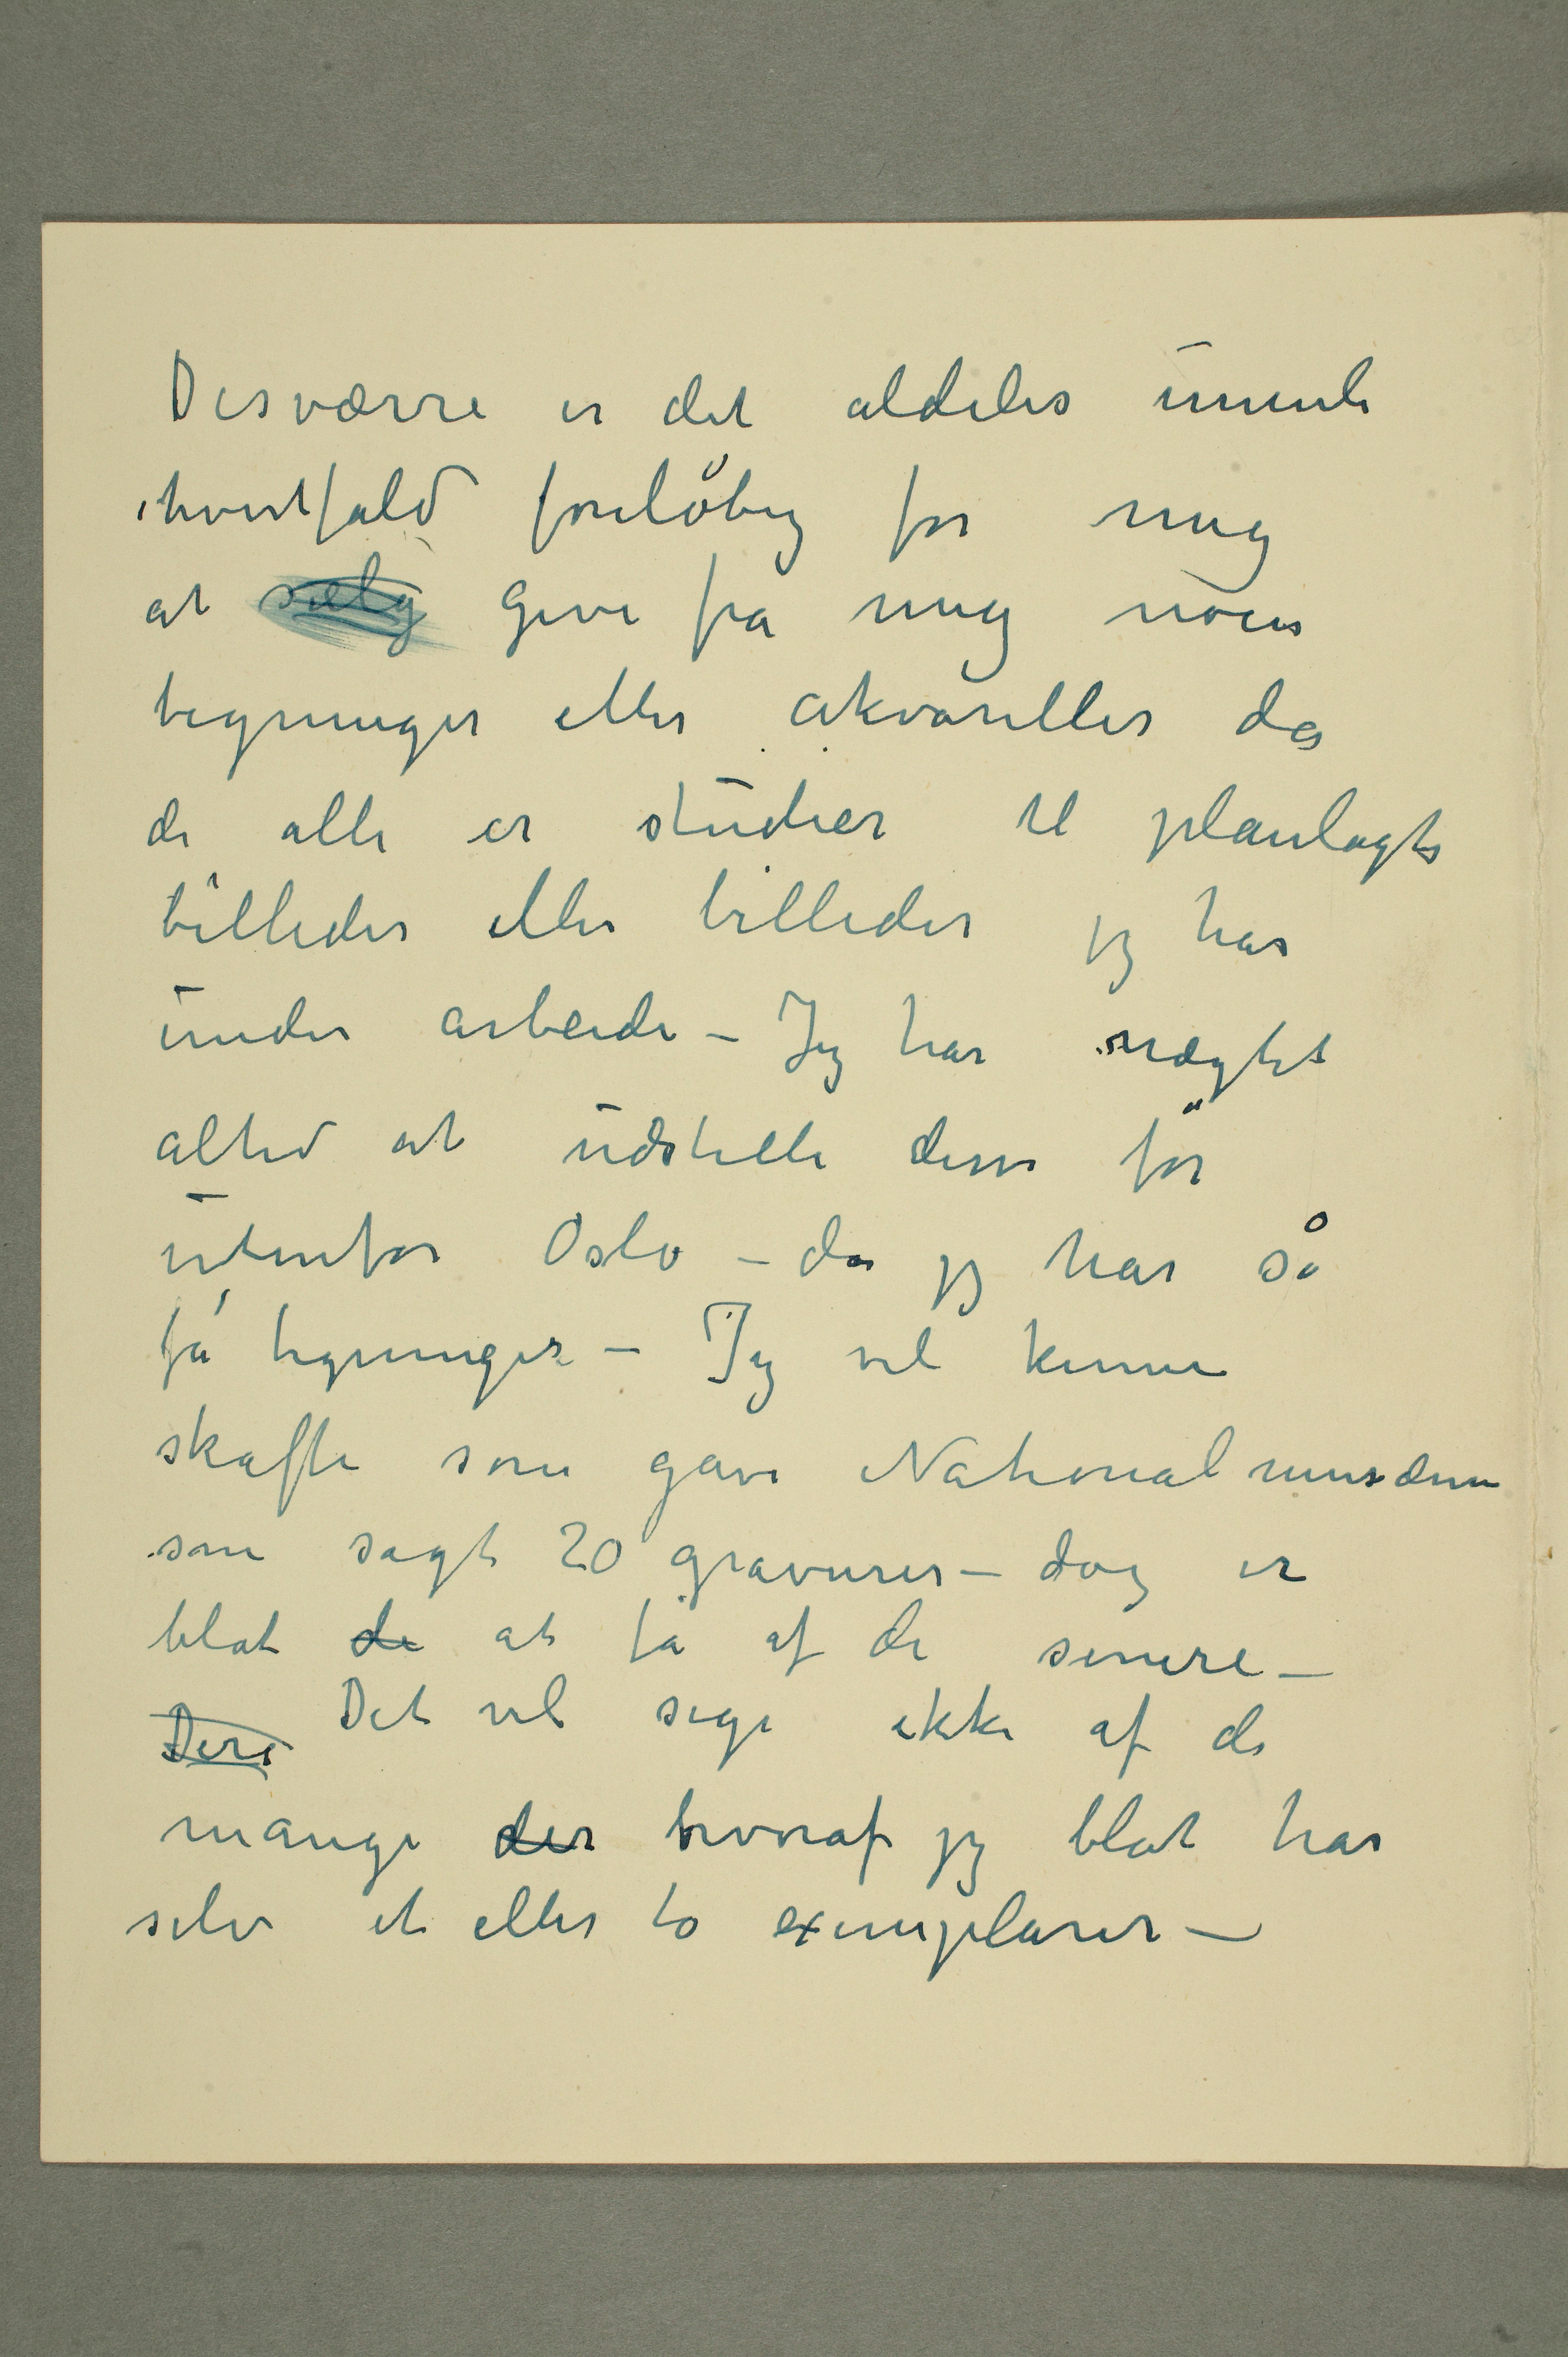 Desværre er det aldeles umuli
ihvertfald foreløbig for mig
at sælg give fra mig noen
tegninger eller akvareller da
de alle er studier til planlagte
billeder eller billeder jeg har
under arbeide – Jeg har nægtet
altid at udstille disse før
utenfor Oslo – da jeg har så
få tegninger – Jeg vil kunne
skaffe som gave Nationalmusæum
som sagt 20 gravurer – dog er
blot de at få af de senere –
Deri Det vil sige ikke af de
mange der hvoraf jeg blot har
selv et eller to exemplarer –